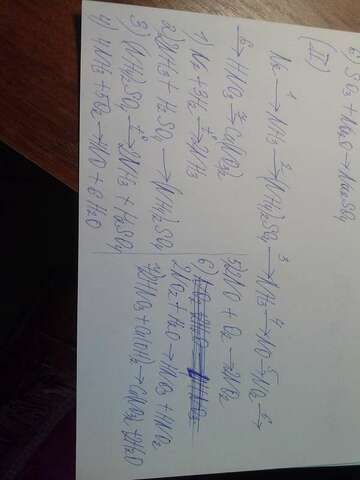 6) SO3 + Na2O → Na2SO4
(II)
N2 →1 NH3 →2 (NH4)2SO4 →3 NH3 →4 NO →5 NO2 →6
→6 HNO3 →7 Cu(NO3)2
1) N2 + 3H2 → 2NH3
2) 2NH3 + H2SO4 → (NH4)2SO4
3) (NH4)2SO4 →t° 2NH3 + H2SO4
4) 4NH3 + 5O2 → 4NO + 6H2O
5) 2NO + O2 → 2NO2
6)
2NO2 + H2O → HNO3 + HNO2
7) 2HNO3 + Cu(OH)2 → Cu(NO3)2 + 2H2O